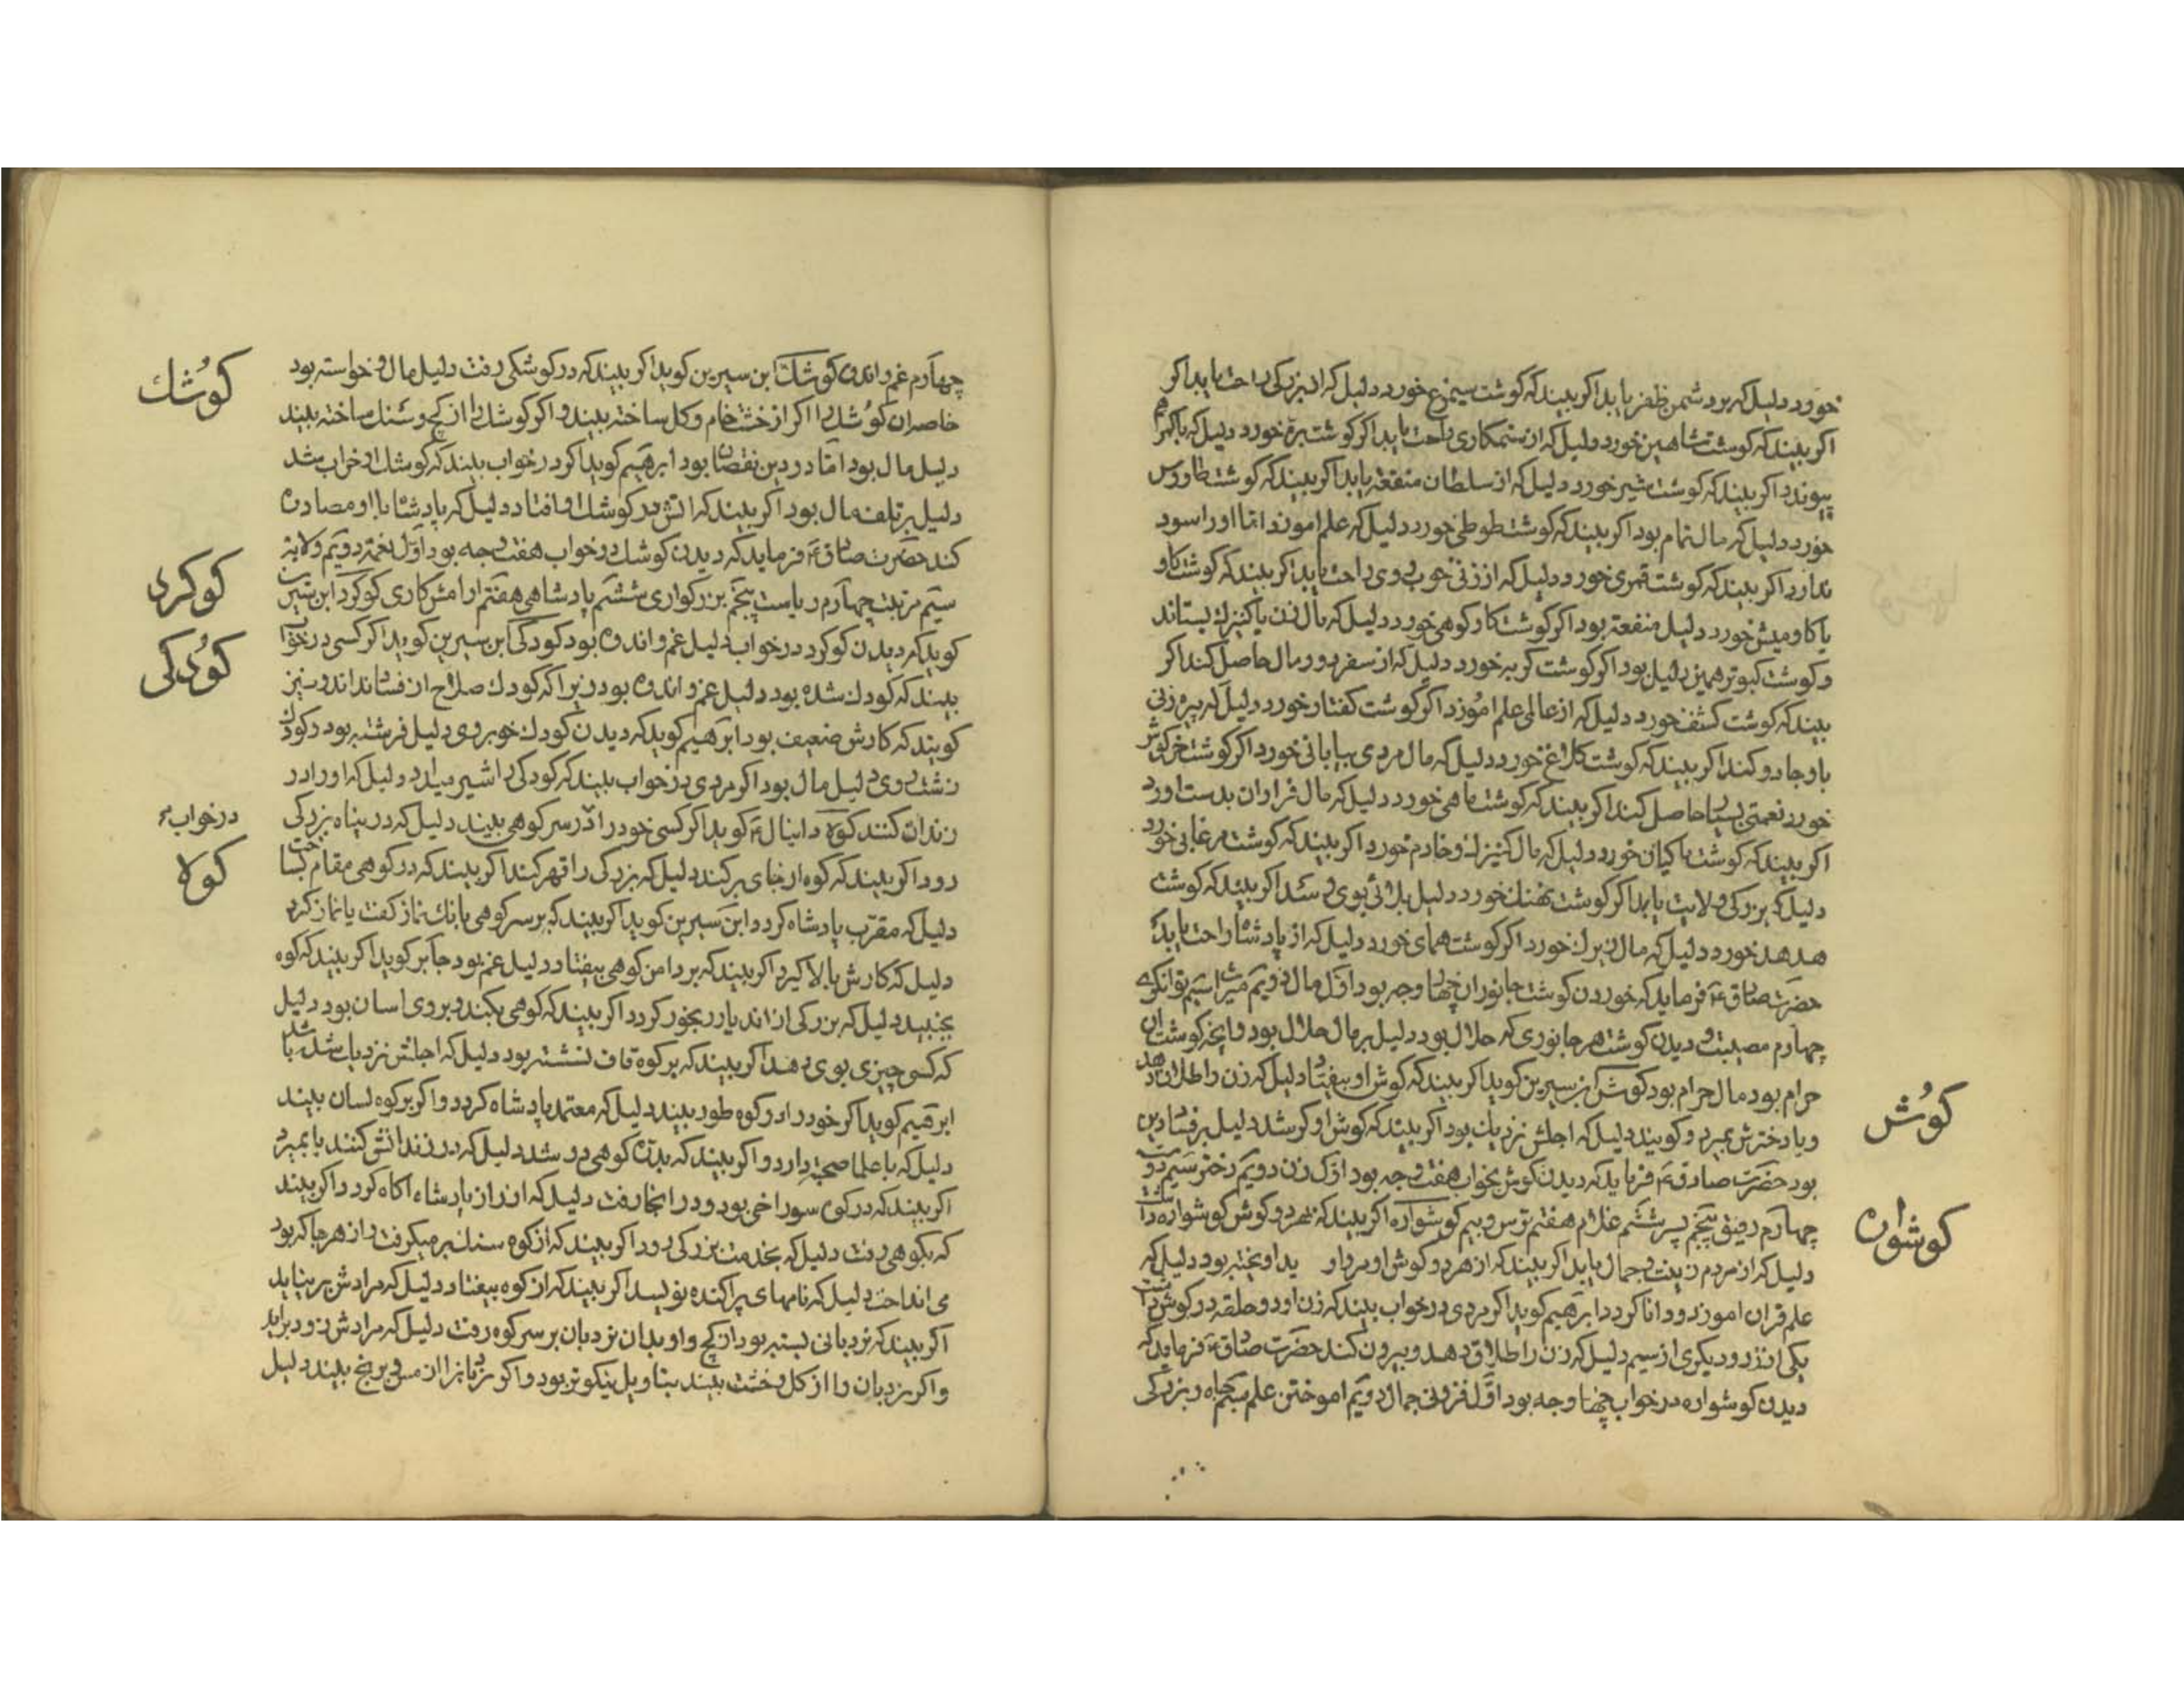 خورد دلیل که بر دشمن ظفر یابد اکر بیند که کوشت سیمرغ خورد دلیل که از بزرکی راحت یابد اکر
اکر بیند که کوشت شاهین خورد دلیل که از ستمکاری راحت یابد اکر کوشت بره خورد دلیل که با
پیوندد اکر بیند که کوشت شیر خورد دلیل که از سلطان منفعة یابد اکر بیند که کوشت طاوس
خورد دلیل که مال تمام بود اکر بیند که کوشت طوطی خورد دلیل که علم اموزد اما او را سود
ندارد اکر بیند که کوشت قمری خورد دلیل که از زنی خوب روی راحت یابد اکر بیند که کوشت کاو
یا کاومیش خورد دلیل منفعة بود اکر کوشت کاو کوهی خورد دلیل که مال زن یا کنیزک بستاند
و کوشت کبوتر همین دلیل بود اکر کوشت کربه خورد دلیل که از سفر دور مال حاصل کند اکر
بیند که کوشت کشف خورد دلیل که از عالمی علم اموزد اکر کوشت کفتار خورد دلیل که پیره زنی
با او جادو کند اکر بیند که کوشت کلاغ خورد دلیل که مال مردی بیابانی خورد اکر کوشت خرکوش
خورد نعمتی بسیار حاصل کند اکر بیند که کوشت ماهی خورد دلیل که مال فراوان بدست اورد
اکر بیند که کوشت ماکیان خورد دلیل که مال کنیزک و خادم خورد اکر بیند که کوشت مرغابی خورد
دلیل که بزرکی و ولایت یابد اکر کوشت نهنک خورد دلیل بلائی بوی رسد اکر بیند که کوشت
هدهد خورد دلیل که مال زیرک خورد اکر کوشت همای خورد دلیل که از پادشاه راحت یابد
حضرت صادق ع فرماید که خوردن کوشت جانوران چهار وجه بود اول مال دویم میراث سیم توانکری
چهارم مصیبت و دیدن کوشت هر جانوری که حلال بود دلیل بر مال حلال بود و انچه کوشت ان
حرام بود مال حرام بود کوش ابن سیرین کوید اکر بیند که کوش او بیفتاد دلیل که زن را طلاق دهد
و یا دخترش بمیرد و کویند دلیل که اجلش نزدیک بود اکر بیند که کوش او کر شد دلیل بر فساد دین
بود حضرت صادق ع فرماید که دیدن کوش بخواب هفت وجه بود اول زن دویم دختر سیم
چهارم رفیق پنجم پسر ششم غلام هفتم ترس و بیم کوشواره اکر بیند که بهر دو کوش کوشواره داشت
دلیل که از مردم زینت و جمال یابد اکر بیند که از هر دو کوش او مروارید اویخته بود دلیل که
علم قران اموزد و دانا کردد ابرهیم کوید اکر مردی در خواب بیند که زن او دو حلقه در کوش داشت
یکی از زر و دیکری از سیم دلیل که زن را طلاق دهد و بیرون کند حضرت صادق ع فرماید که
دیدن کوشواره در خواب چهار وجه بود اول فزونی جمال دویم اموختن علم سیم جاه و بزرکی
کوش
کوشواره
چهارم غم و اندوه کوشک ابن سیرین کوید اکر بیند که در کوشکی رفت دلیل مال و خواسته بود
خاصه ان کوشک را اکر از خشت خام و کل ساخته بیند و اکر کوشک را از کچ و سنک ساخته بیند
دلیل مال بود اما در دین نقصان بود ابرهیم کوید اکر در خواب بیند که کوشک او خراب شد
دلیل بر تلف مال بود اکر بیند که اتش در کوشک او افتاد دلیل که پادشاه با او مصادره
کند حضرت صادق ع فرماید که دیدن کوشک در خواب هفت وجه بود اول دختر دویم ولایة
سیم مرتبت چهارم ریاست پنجم بزرکواری ششم پادشاهی هفتم ارامش کاری کوکرد ابن سیرین
کوید که دیدن کوکرد در خواب دلیل غم و اندوه بود کودکی ابن سیرین کوید اکر کسی در خواب
بیند که کودک شده بود دلیل غم و اندوه بود زیرا که کودک صلاح از فساد نداند و نیز
کویند که کارش ضعیف بود ابرهیم کوید که دیدن کودک خوبروی دلیل فرشته بود و کودک
زشت روی دلیل مال بود اکر مردی در خواب بیند که کودکی را شیر میداد دلیل که او را در
زندان کنند کوه دانیال ع کوید اکر کسی خود را در سر کوهی بیند دلیل که در پناه بزرکی
رود اکر بیند که کوه از جای بر کند دلیل که بزرکی را قهر کند اکر بیند که در کوهی مقام ساخت
دلیل که مقرب پادشاه کردد ابن سیرین کوید اکر بیند که بر سر کوهی بانک نماز کفت یا نماز کرد
دلیل که کارش بالا کیرد اکر بیند که بر دامن کوهی بیفتاد دلیل غم بود جابر کوید اکر بیند که کوه
بجنبید دلیل که بزرکی از ان دیار رنجور کردد اکر بیند که کوهی بکند و بروی اسان بود دلیل
که کسی چیزی بوی دهد اکر بیند که بر کوه قاف نشسته بود دلیل که اجلش نزدیک شده باشد
ابرهیم کوید اکر خود را در کوه طور بیند دلیل که معتمد پادشاه کردد و اکر بر کوه لسان بیند
دلیل که با علما صحبة دارد و اکر بیند که بدره کوهی در شد دلیل که در زندانش کنند یا بمیرد
اکر بیند که در کوه سوراخی بود و در انجا رفت دلیل که از راز پادشاه اکاه کردد اکر بیند
که بکوهی رفت دلیل که بخدمت بزرکی رود اکر بیند که از کوه سنک بر میکرفت و از هر جا که بود
می انداخت دلیل که نامهای پراکنده نویسد اکر بیند که از کوه بیفتاد دلیل که مرادش بر نیاید
اکر بیند که نردبانی بسته بود از کچ و او بدان نردبان بر سر کوه رفت دلیل که مرادش زود براید
و اکر نردبان را از کل و خشت بیند بتاویل نیکوتر بود و اکر نردبانرا از مس و برنج بیند دلیل
کوشک
کوکرد
کودکی
در خواب
کوه